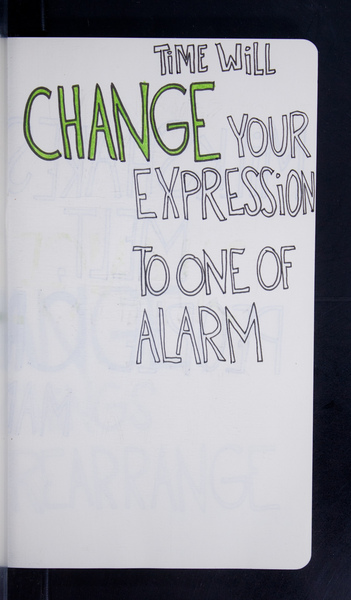 TiME WiLL
CHANGE YOUR
EXPRESSiON
TO ONE OF
ALARM
REARRANGE